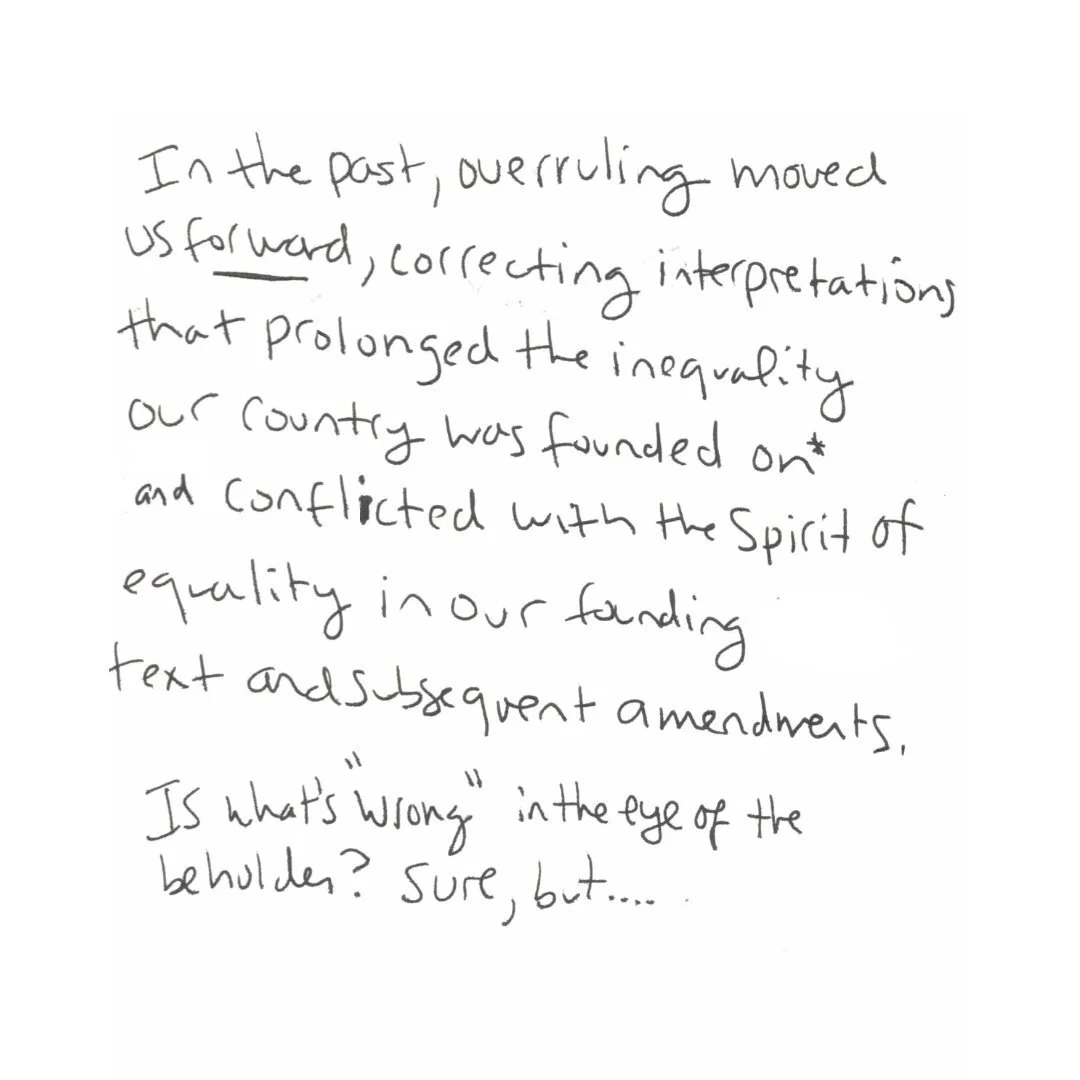 In the past, overruling moved
us forward, correcting interpretations
that prolonged the inequality
our country was founded on*
and conflicted with the spirit of
equality in our founding
text and subsequent amendments.
Is what's "wrong" in the eye of the
beholder? Sure, but....